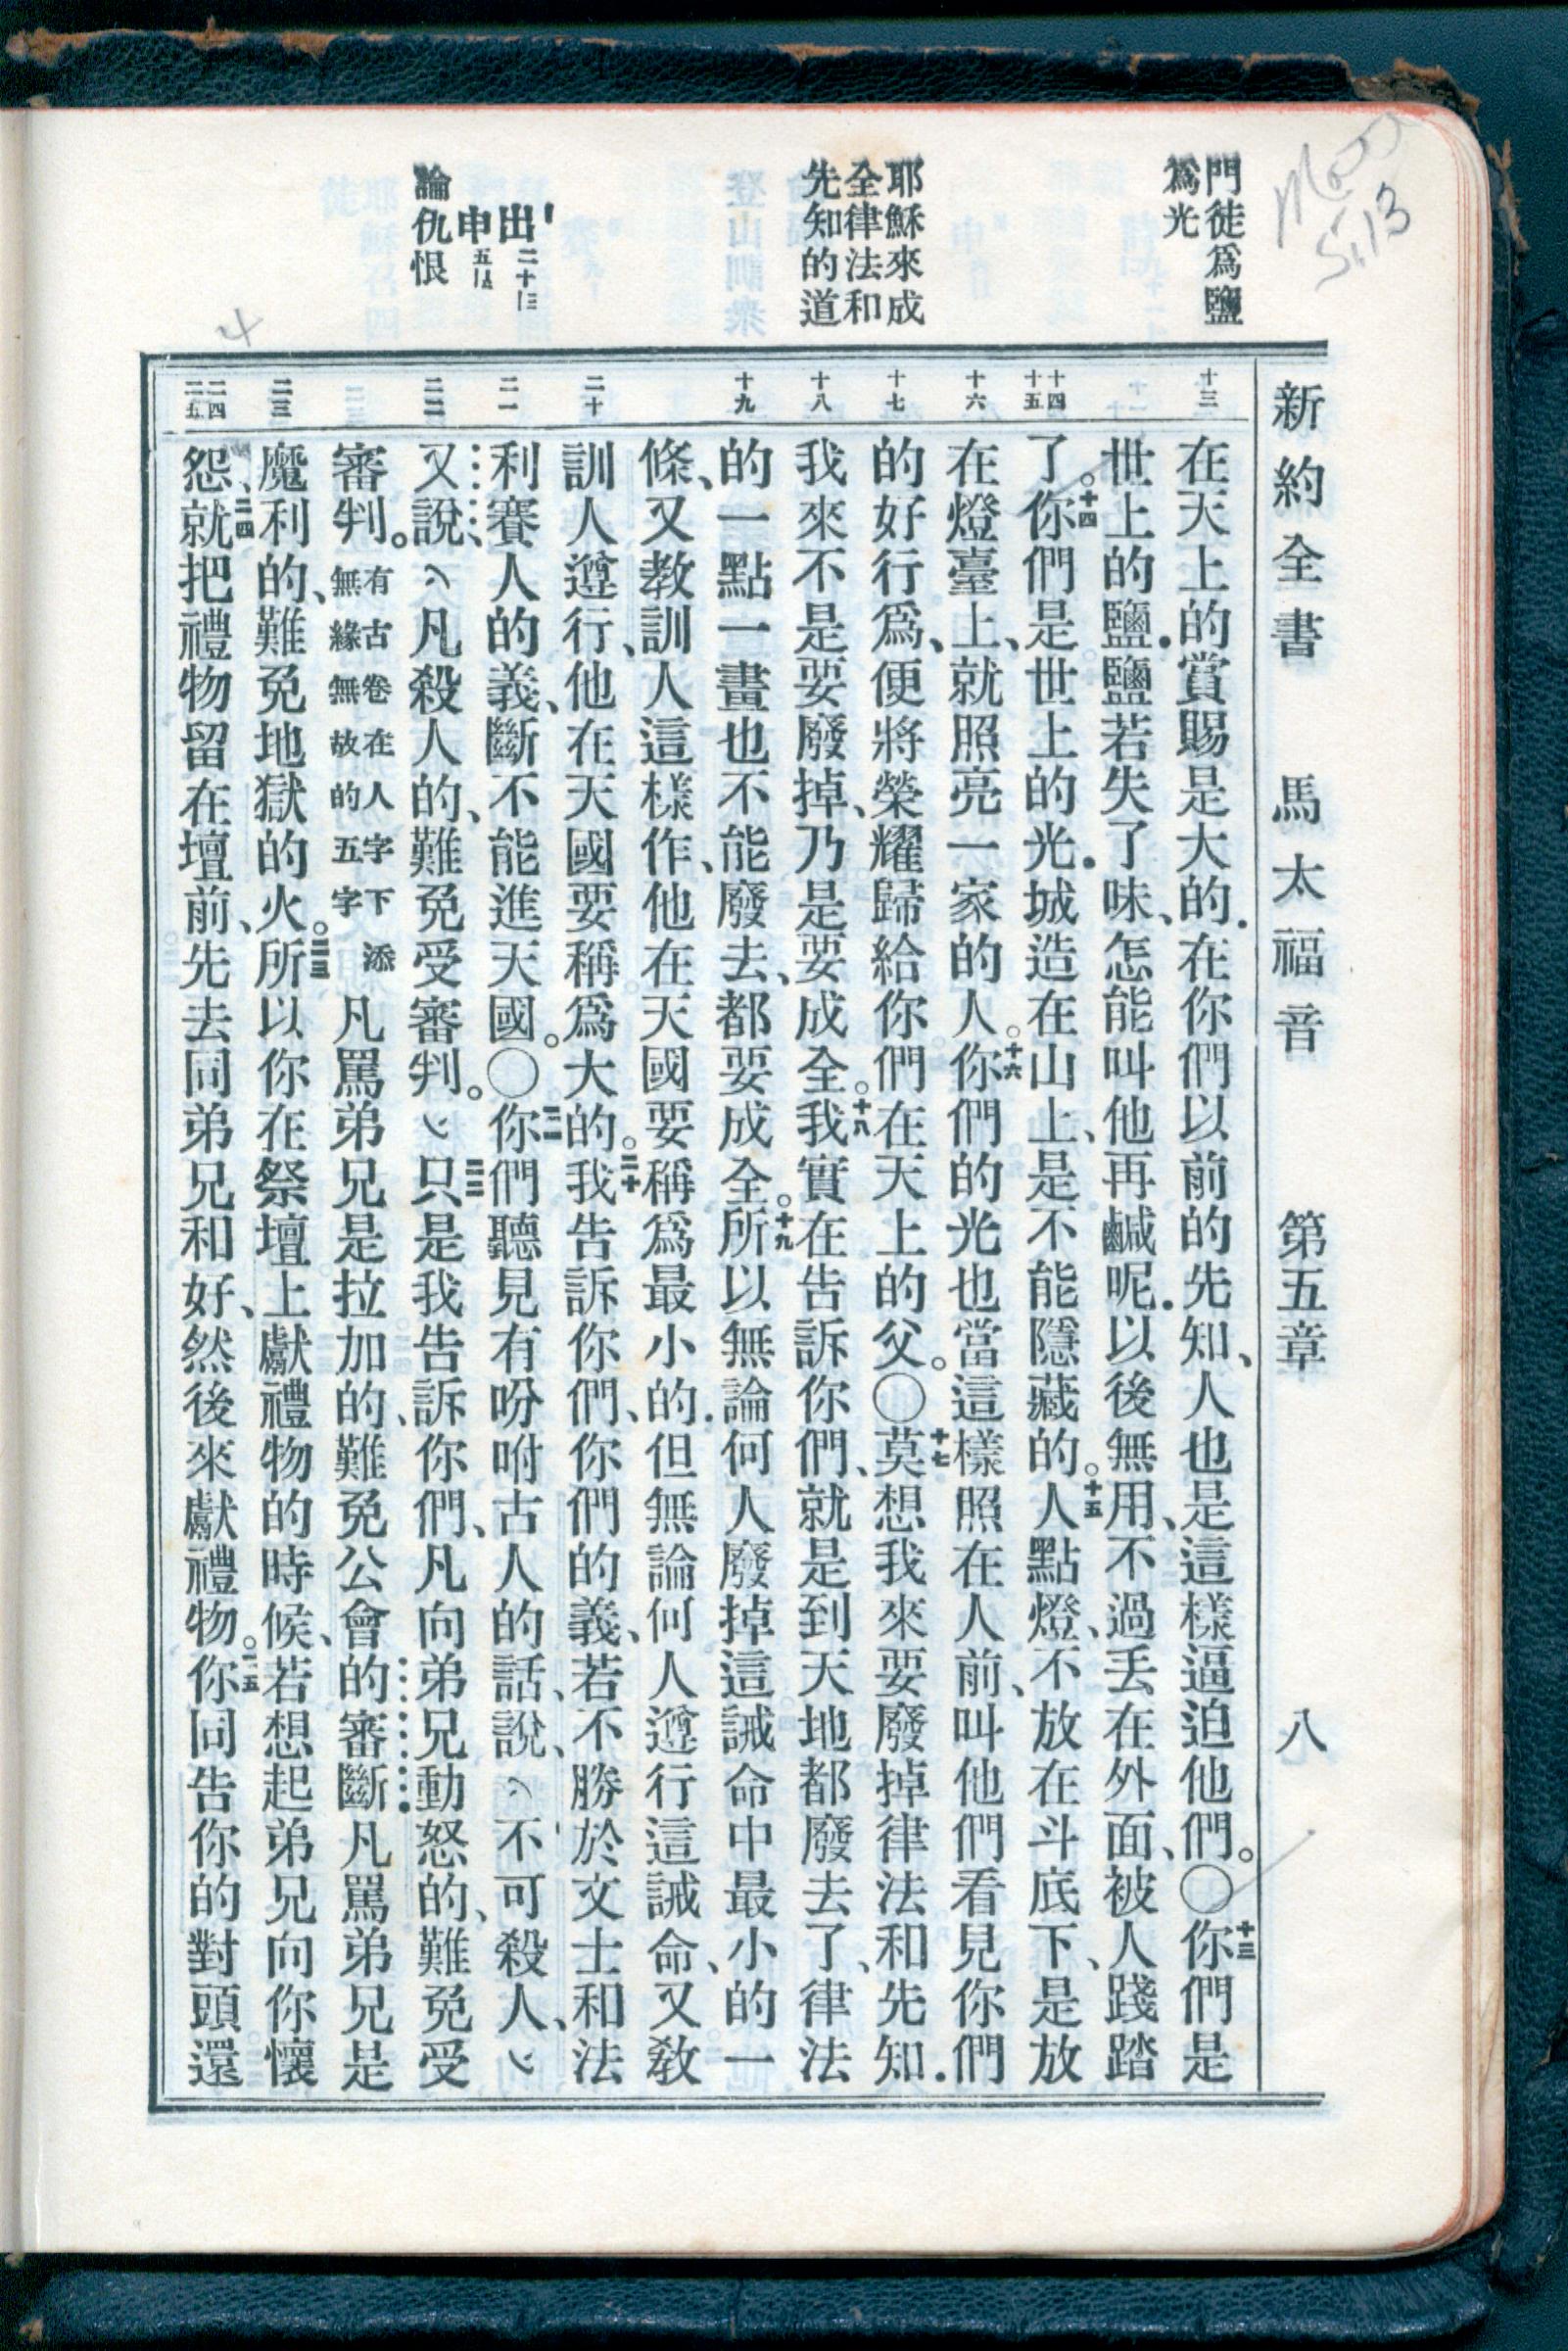 Matt
5:13
門徒爲鹽
爲光
耶穌來成
全律法和
先知的道
出二十〡〣
申五〡
論仇恨
4
新約全書 馬太福音 第五章 八
十三
十四
十五
十六
十七
十八
十九
二十
二一
二二
二三
二四
二五
在天上的賞賜是大的．在你們以前的先知、人也是這樣逼迫他們。〇十三你們是
世上的鹽．鹽若失了味、怎能叫他再鹹呢．以後無用、不過丟在外面、被人踐踏
了。十四你們是世上的光．城造在山上、是不能隱藏的。十五人點燈、不放在斗底下、是放
在燈臺上、就照亮一家的人。十六你們的光也當這樣照在人前、叫他們看見你們
的好行爲、便將榮耀歸給你們在天上的父。〇十七莫想我來要廢掉律法和先知．
我來不是要廢掉、乃是要成全。十八我實在告訴你們、就是到天地都廢去了、律法
的一點一畫也不能廢去、都要成全。十九所以無論何人廢掉這誡命中最小的一
條、又教訓人這樣作、他在天國要稱爲最小的．但無論何人遵行這誡命、又教
訓人遵行、他在天國要稱爲大的。二十我告訴你們、你們的義、若不勝於文士和法
利賽人的義、斷不能進天國。〇二一你們聽見有吩咐古人的話、說、﹁不可殺人、﹂
又說﹁凡殺人的、難免受審判。﹂二二只是我告訴你們、凡向弟兄動怒的、難免受
審判。有古卷在人字下添無緣無故的五字凡罵弟兄是拉加的、難免公會的審斷凡罵弟兄是
魔利的、難免地獄的火。二三所以你在祭壇上獻禮物的時候、若想起弟兄向你懷
怨、二四就把禮物留在壇前、先去同弟兄和好、然後來獻禮物。二五你同告你的對頭還